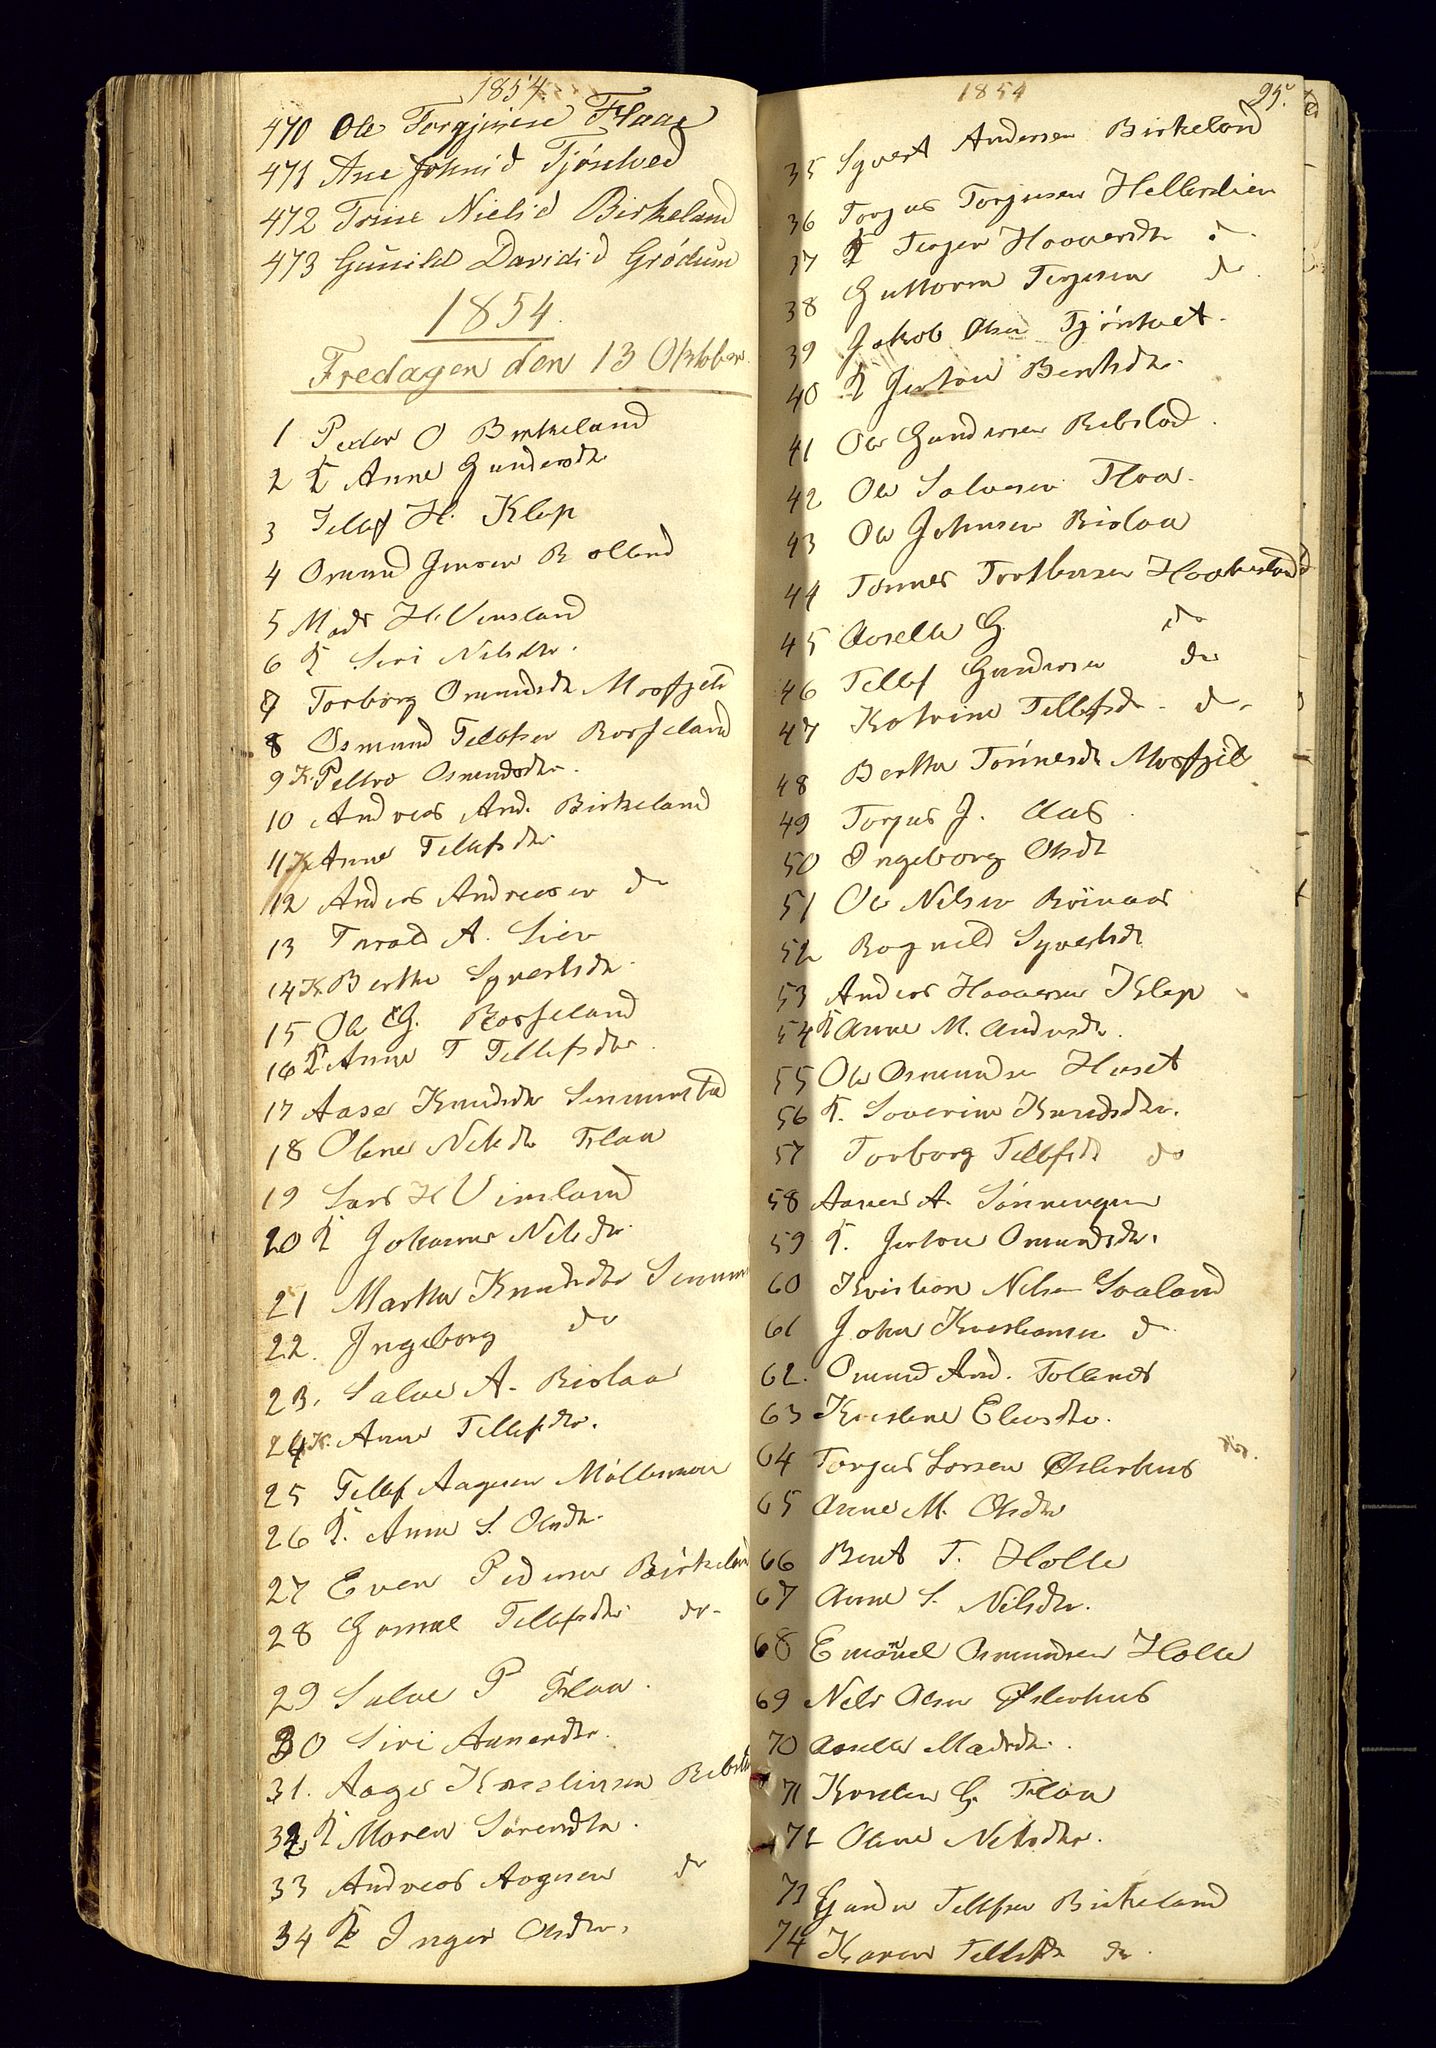 1854.
470 Ole Torgjusen Flaae
471 Ane Johnsd Tjóstved
472 Trine Nielsd Birkeland
473 Gunild Davidsd Gródum
1854.
Fredagen den 13 Oktober.
1 Peder O Birkeland
2 K Anne Gundersdtr
3 Tellef H. Klep
4 Omund Jensen
5 Mads H. Vinsland
6 K Siri Nilsdtr.
7 Torborg Omundsdt Mosfjeld
8 Osmund Tellefsen Rosseland
9 K. Osmundsdtr.
10 Andreas And. Birkeland
11 K Anne Tellefsdtr
12 Anders Andreasen do
13 A. Lien
14 K Berthe Syvertsdtr.
15 Ole G. Rosseland
16 K Anne T Tellefsdtr.
17 Aase Knudsdtr
18 Olene Nilsdtr Flaa
19 Lars H Vinsland
20 K Johanne Nilsdtr.
21 Marthe Knudsdtr
22. Ingeborg do
23. Salve A. Rislaa
24 K. Anne Tellefsdtr.
25 Tellef Aagesen
26 K. Anne S. Olsdtr.
27 Even Pedersen Birkeland
28 Tellefsdtr do
29 Salve P Flaa.
30 Siri Aanensdtr.
31. Aage Kristensen
32 K Maren Sörensdtr.
33 Andreas Aagesen do
34 K Inger Olsdtr.
1854
95.
35 Syvert Andersen Birkeland
36 Torjus Torjusen Hellerslien
37 K Haaversdtr do
38 Guttorm Terjesen do
39 Jakob Olsen Tjóstvet.
40 K Jertrue Bentsdtr.
41 Ole Gundersen Rebslad.
42 Ole Salvesen Flaa.
43 Ole Johnsen Rislaa
44 Tønnes
45 Aaselle G. do
46 Tellef Gundersen do
47 Katrine Tellefsdtr. do
48 Berthe Tønnesdtr Mosfjeld
49 Torjus J. Aas.
50 Ingeborg Olsdtr
51 Ole Nilsen
52 Ragnild Syvertsdtr
53 Anders Haaversen Klep
54 K Anne M. Andersdtr.
55 Ole Osmundsen Huset
56 K. Severine Knudsdtr.
57 Torborg Tellefsdtr do
58 Aanen A.
59 K. Jertrue Omundsdtr.
60 Kristian Nilsen
61 John Kristiansen do
62. Omund And.
63 Kristene
64 Torjus Larsen Østerhus
65 Anne M. Olsdtr
66 Bent T. Holte
67 Anne S. Nilsdtr.
68 Emanuel Osmundsen Holte
69 Nils Olsen Østerhus
70 Aaselle Madsdtr.
71 Karsten G. Flaa
72 Olene Nilsdtr.
73 Gunder Tellefsen Birkeland
74 Karen Tellefsdtr do.